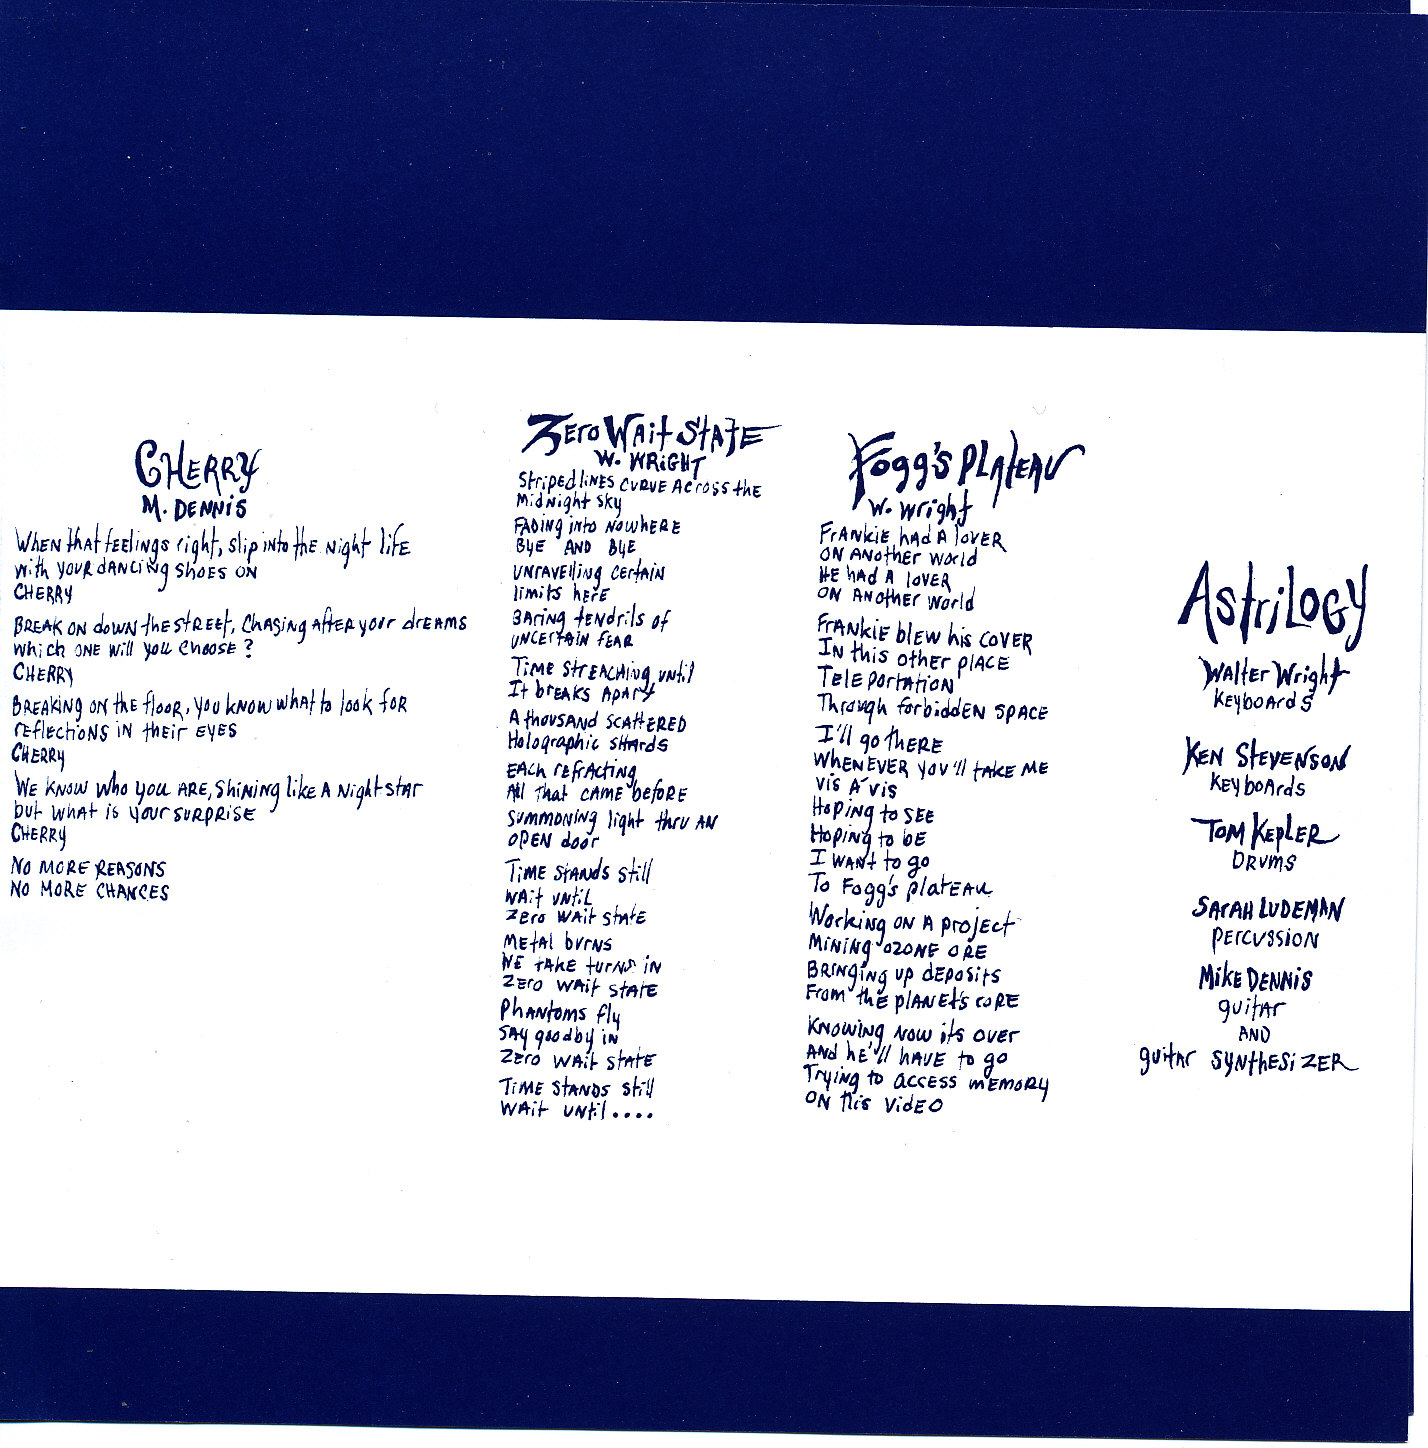 CHERRY
M. DENNIS
WHEN that feelings right, slip into the night life
with your dancing shoes on
CHERRY
BREAK ON down the street, Chasing after your dreams
which one will you choose?
CHERRY
BREAKING on the floor, you know what to look for
reflections in their eyes
CHERRY
We know who you are, shining like a night star
but what is your surprise
CHERRY
No more reasons
No more chances
Zero Wait State
W. WRIGHT
Striped lines curve across the
midnight sky
Fading into nowhere
Bye and bye
Unravelling certain
limits here
Baring tendrils of
uncertain fear
Time streaching until
It breaks apart
A thousand scattered
Holographic shards
Each refracting
All that came before
Summoning light thru an
open door
Time stands still
Wait until
Zero wait state
Metal burns
We take turns in
Zero wait state
Phantoms fly
Say goodby in
Zero wait state
Time stands still
Wait until....
Fogg's Plateau
W. Wright
Frankie had a lover
On another world
He had a lover
On another world
Frankie blew his cover
In this other place
Teleportation
Through forbidden space
I'll go there
Whenever you'll take me
Vis á vis
Hoping to see
Hoping to be
I want to go
To Fogg's plateau
Working on a project
Mining ozone ore
Bringing up deposits
From the planet's core
Knowing now its over
And he'll have to go
Trying to access memory
On this video
Astrilogy
Walter Wright
Keyboards
Ken Stevenson
Keyboards
Tom Kepler
Drums
Sarah Ludeman
percussion
Mike Dennis
guitar
and
guitar synthesizer